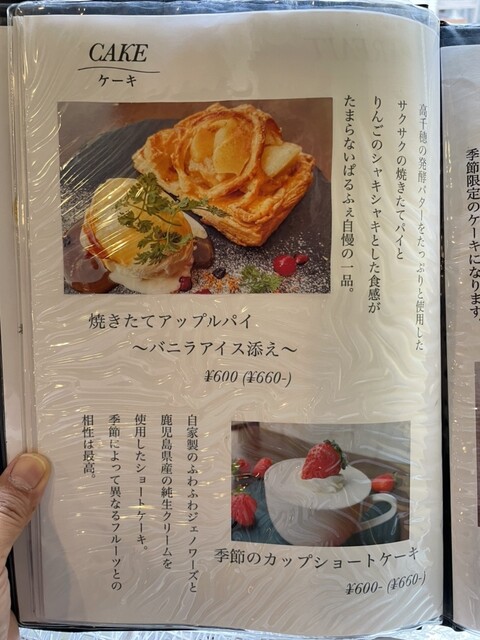 CAKE
ケーキ
高千穂の発酵バターをたっぷりと使用した
サクサクの焼きたてパイと
りんごのシャキシャキとした食感が
たまらないぱるふぇ自慢の一品。
焼きたてアップルパイ
～バニラアイス添え～
¥600 (¥660-)
自家製のふわふわジェノワーズと
鹿児島県産の純生クリームを
使用したショートケーキ。
季節によって異なるフルーツとの
相性は最高。
季節のカップショートケーキ
¥600- (¥660-)
季節限定のケーキになります。